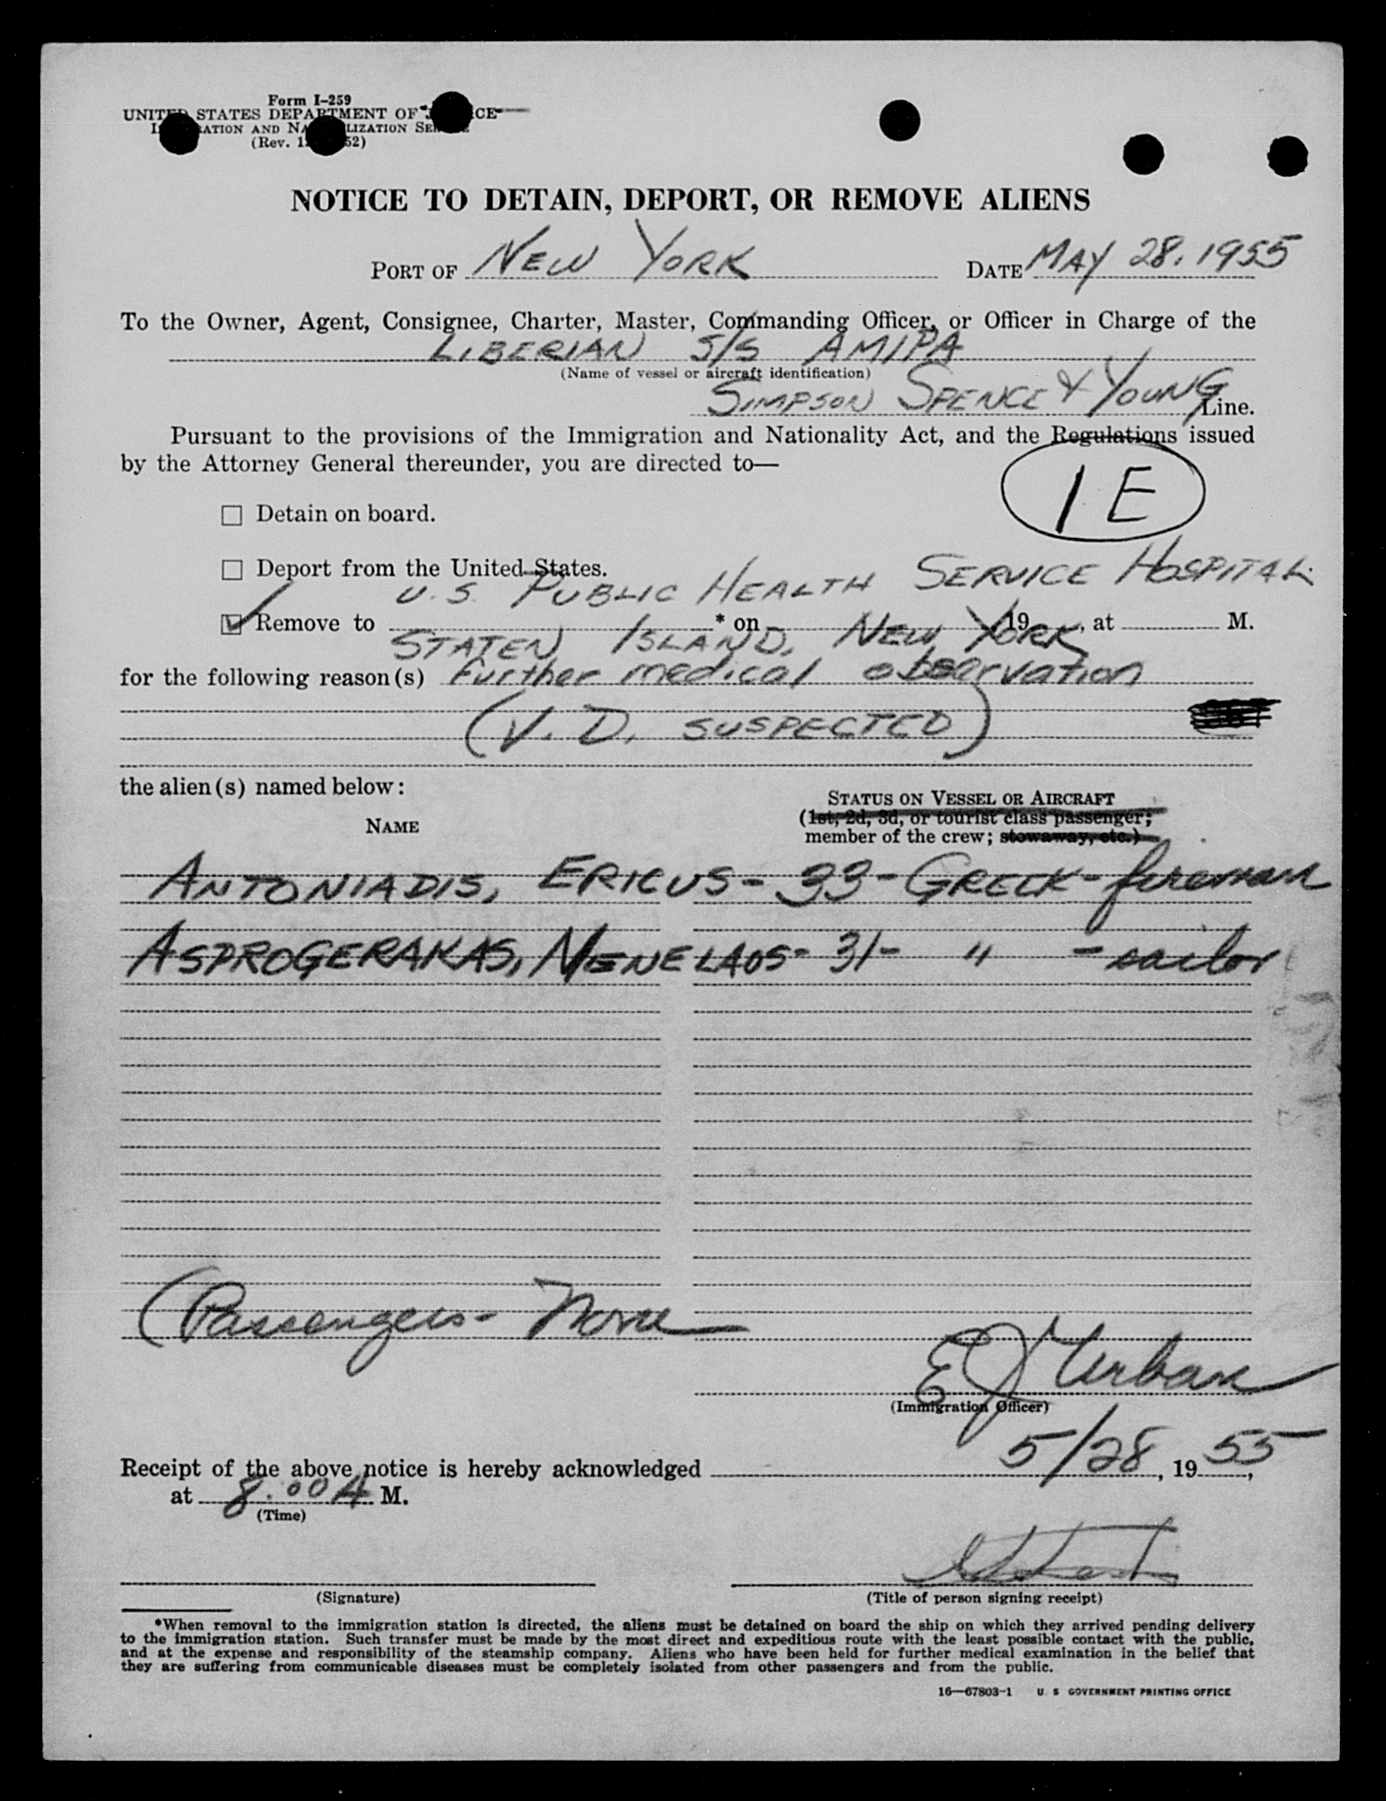 Form I-259
UNITED STATES DEPARTMENT OF JUSTICE
IMMIGRATION AND NATURALIZATION SERVICE
(Rev. 52)
NOTICE TO DETAIN, DEPORT, OR REMOVE ALIENS
PORT OF NEW YORK DATE MAY 28, 1955
To the Owner, Agent, Consignee, Charter, Master, Commanding Officer, or Officer in Charge of the
LIBERIAN S/S AMIPA
(Name of vessel or aircraft identification)
SIMPSON SPENCE & YOUNG Line.
Pursuant to the provisions of the Immigration and Nationality Act, and the Regulations issued
by the Attorney General thereunder, you are directed to—
1 E
☐ Detain on board.
☐ Deport from the United States.
U. S. PUBLIC HEALTH SERVICE HOSPITAL
☑ Remove to * on 19 , at M.
STATEN ISLAND, NEW YORK
for the following reason(s) further medical observation
(V. D. SUSPECTED)
the alien(s) named below:
STATUS ON VESSEL OR AIRCRAFT
NAME (1st, 2d, 3d, or tourist class passenger;
member of the crew; stowaway, etc.)
ANTONIADIS, ERICUS - 33 - GREEK - fireman
ASPROGERAKAS, MENELAOS - 31 - " - sailor
(Passengers - None
E J Urban
(Immigration Officer)
Receipt of the above notice is hereby acknowledged 5/28, 1955,
at 8:00 A M.
(Time)
(Signature) (Title of person signing receipt)
*When removal to the immigration station is directed, the aliens must be detained on board the ship on which they arrived pending delivery
to the immigration station. Such transfer must be made by the most direct and expeditious route with the least possible contact with the public,
and at the expense and responsibility of the steamship company. Aliens who have been held for further medical examination in the belief that
they are suffering from communicable diseases must be completely isolated from other passengers and from the public.
16—67803-1 U. S. GOVERNMENT PRINTING OFFICE